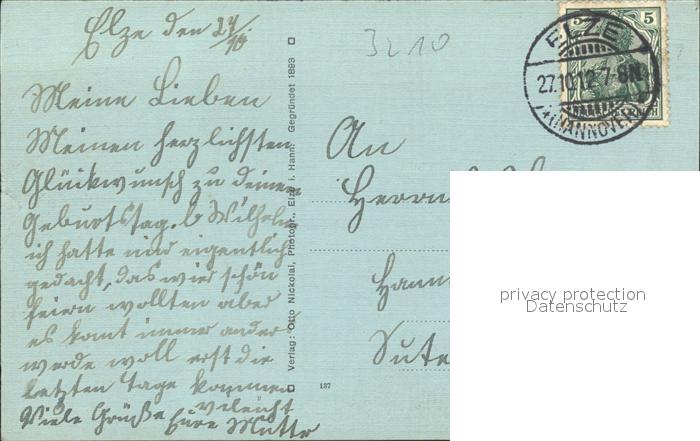 Elze den 27/10
3210
Meine Lieben
Meinen herzlichsten
Glückwunsch zu deinem
Geburtstag. b Wilhelm
ich hatte mir eigentlich
gedacht, das wier schön
feiern wollten aber
es komt immer anders
werde woll erst die
letzten Tage kommen
vieleicht
Viele Grüße Eure Mutter
Verlag: Otto Nicolai, Photogr., Elze i. Hann. Gegründet 1893
137
An
Herrn
Hann
Sute
5
ELZE
27.10.12.7-8N.
(HANNOVER)
privacy protection
Datenschutz